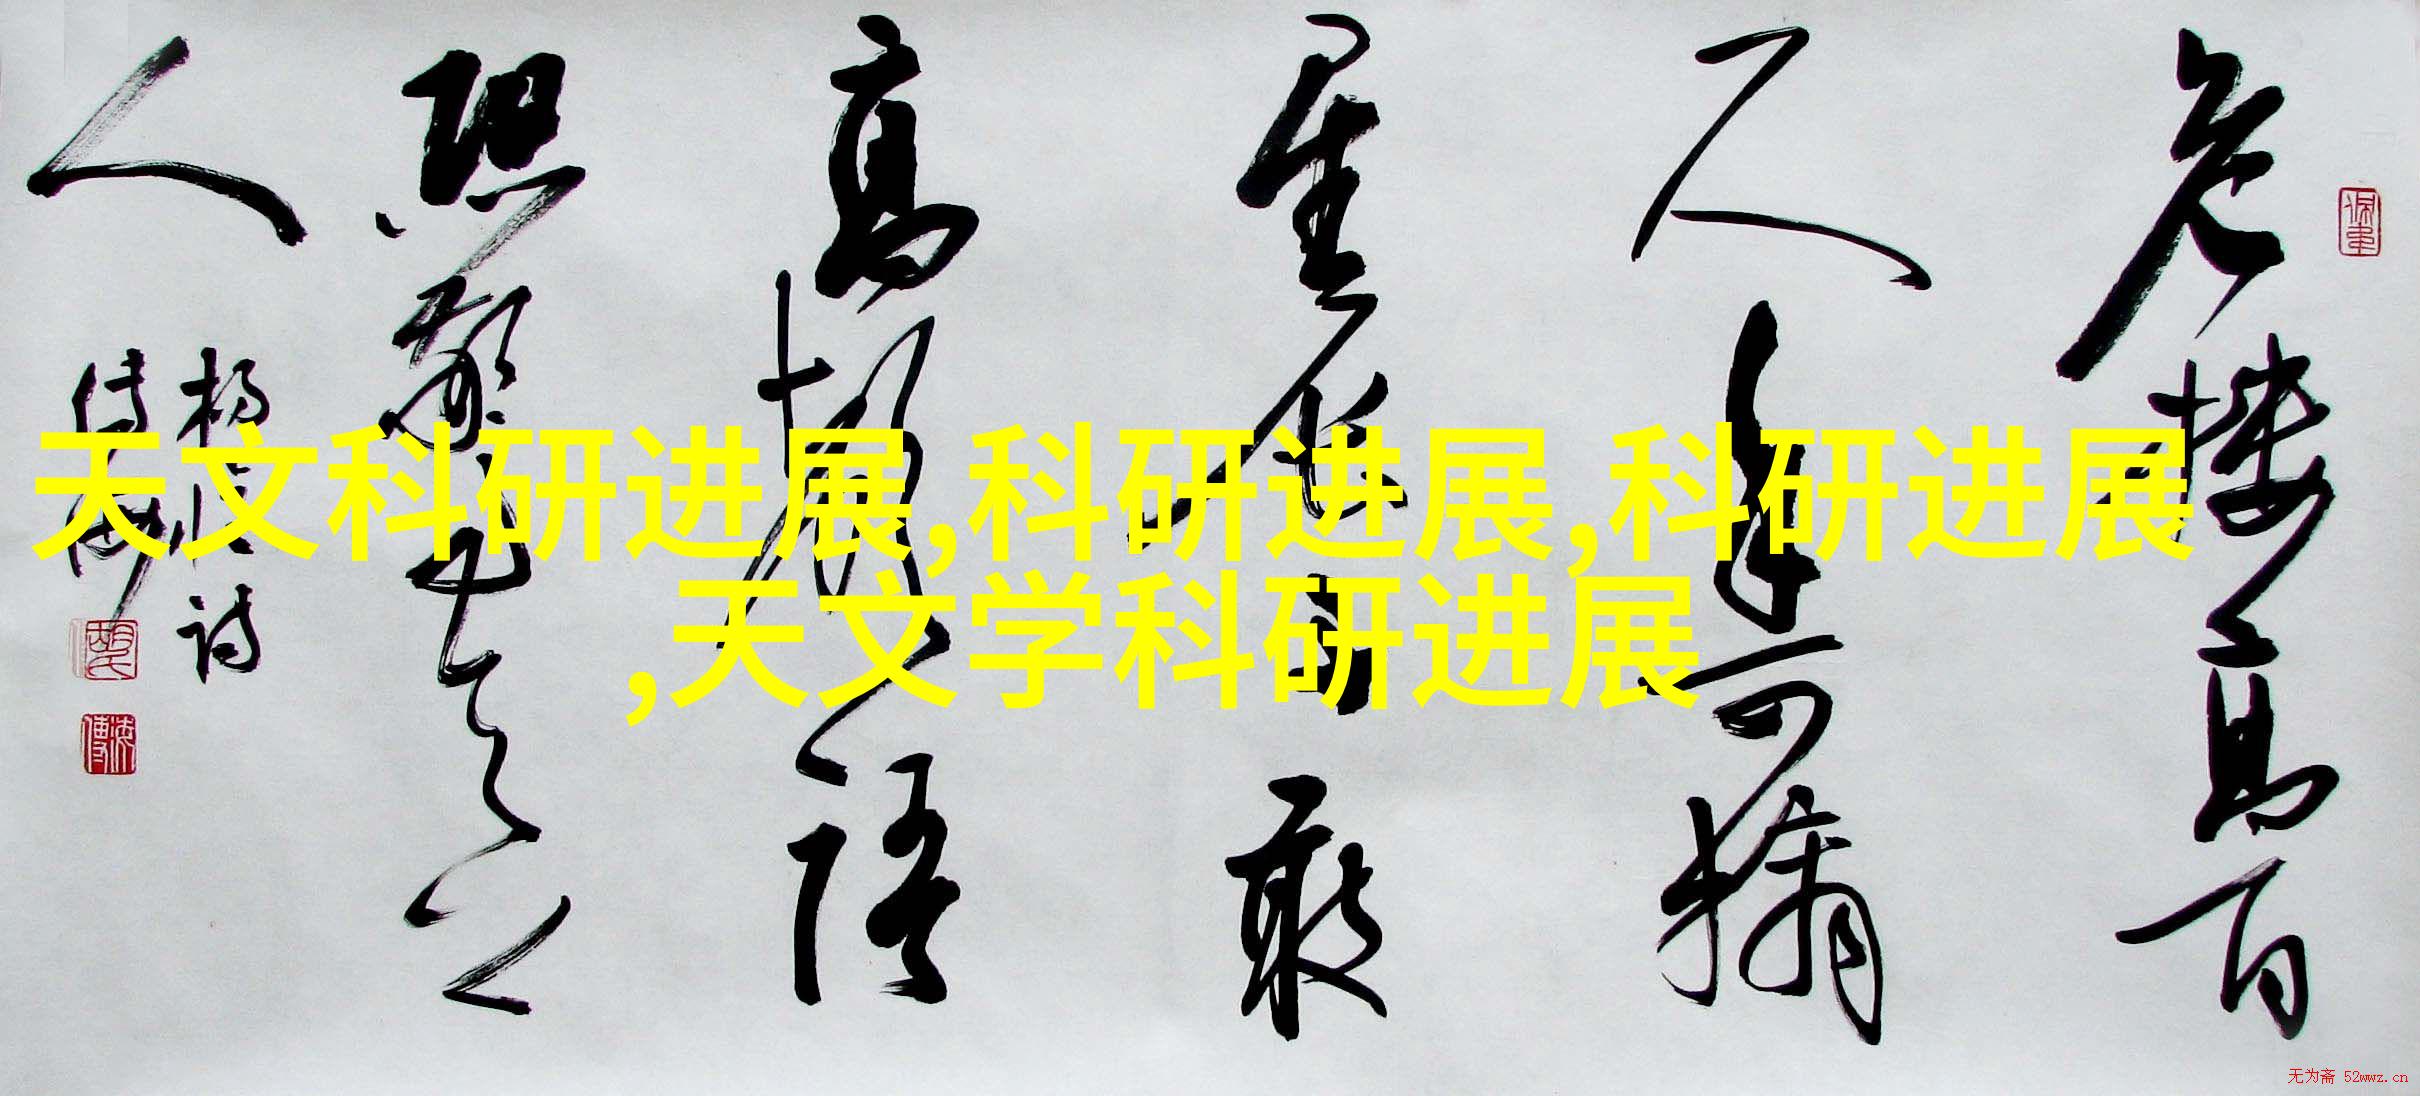 天文科研进展,科研进展,科研进展
,天文学科研进展
危楼高百
尺手可摘
星辰不敢
高声语
恐惊天上
人
诗
无为斋 52wwz.cn